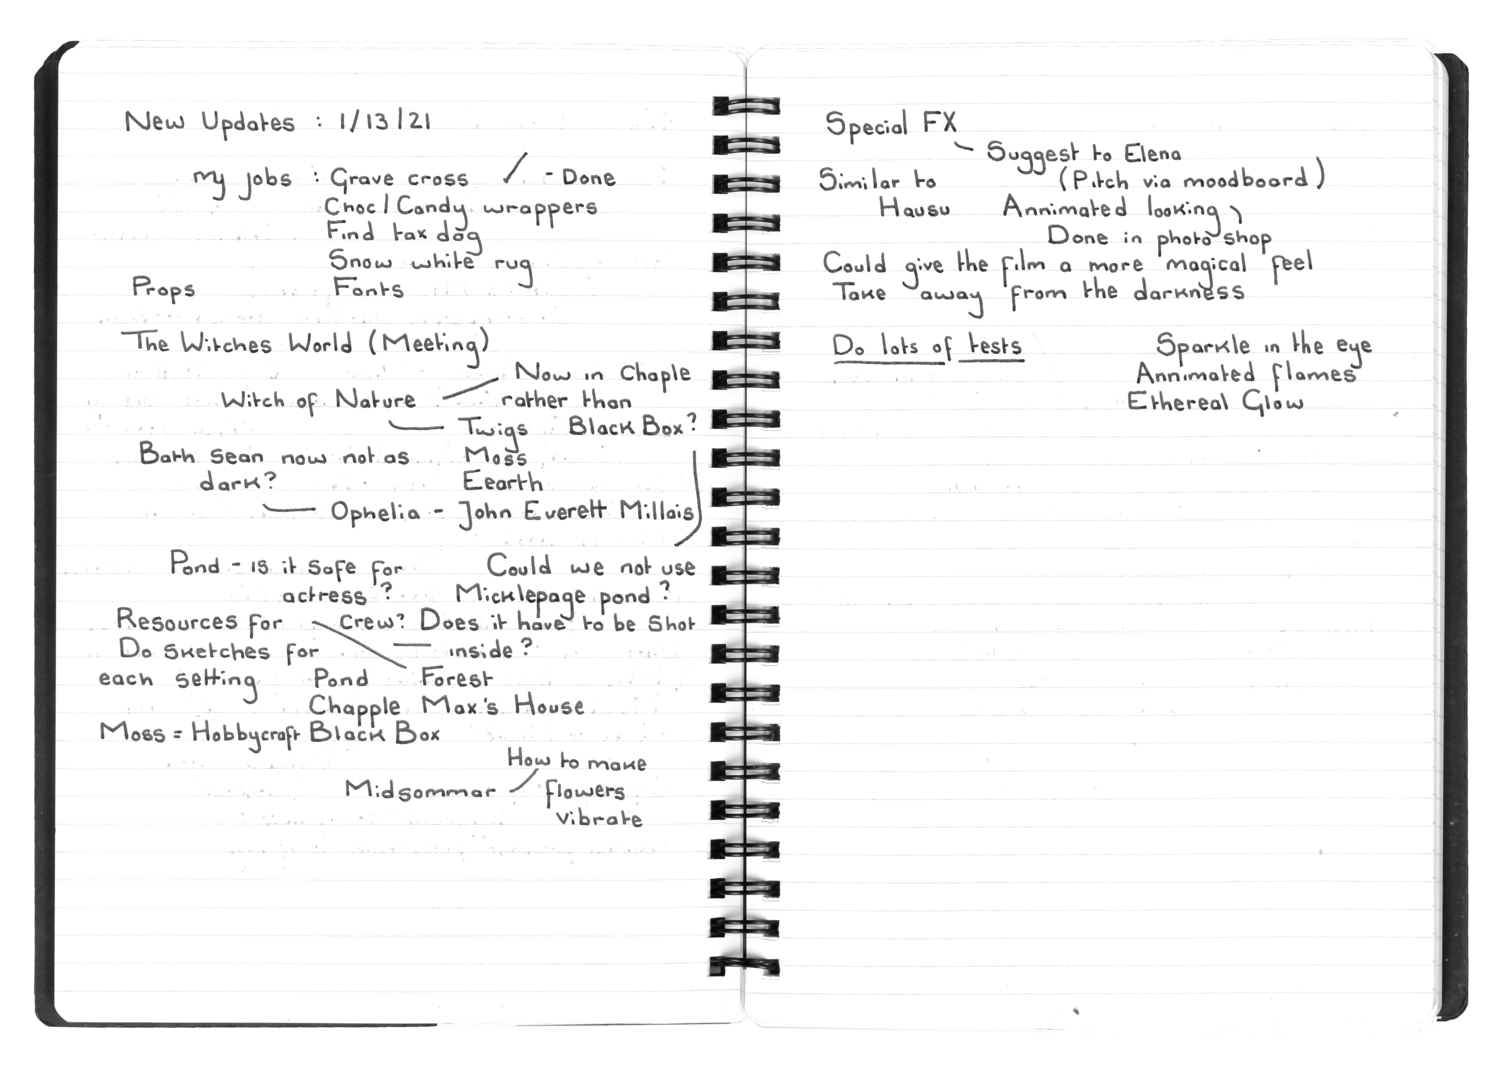 New Updates : 1/13/21
my jobs : Grave cross ✓ - Done
Choc/Candy wrappers
Find tax dog
Snow white rug
Props Fonts
The Witches World (Meeting)
Now in Chaple
Witch of Nature rather than
Twigs Black Box?
Bath sean now not as Moss
dark? Eearth
Ophelia - John Everett Millais
Pond - is it safe for Could we not use
actress? Micklepage pond?
Resources for crew? Does it have to be shot
Do sketches for inside?
each setting Pond Forest
Chapple Max's House
Moss = Hobbycraft Black Box
How to make
Midsommar flowers
vibrate
Special FX
Suggest to Elena
Similar to (Pitch via moodboard)
Hausu Annimated looking
Done in photo shop
Could give the film a more magical feel
Take away from the darkness
Do lots of tests Sparkle in the eye
Annimated flames
Ethereal Glow